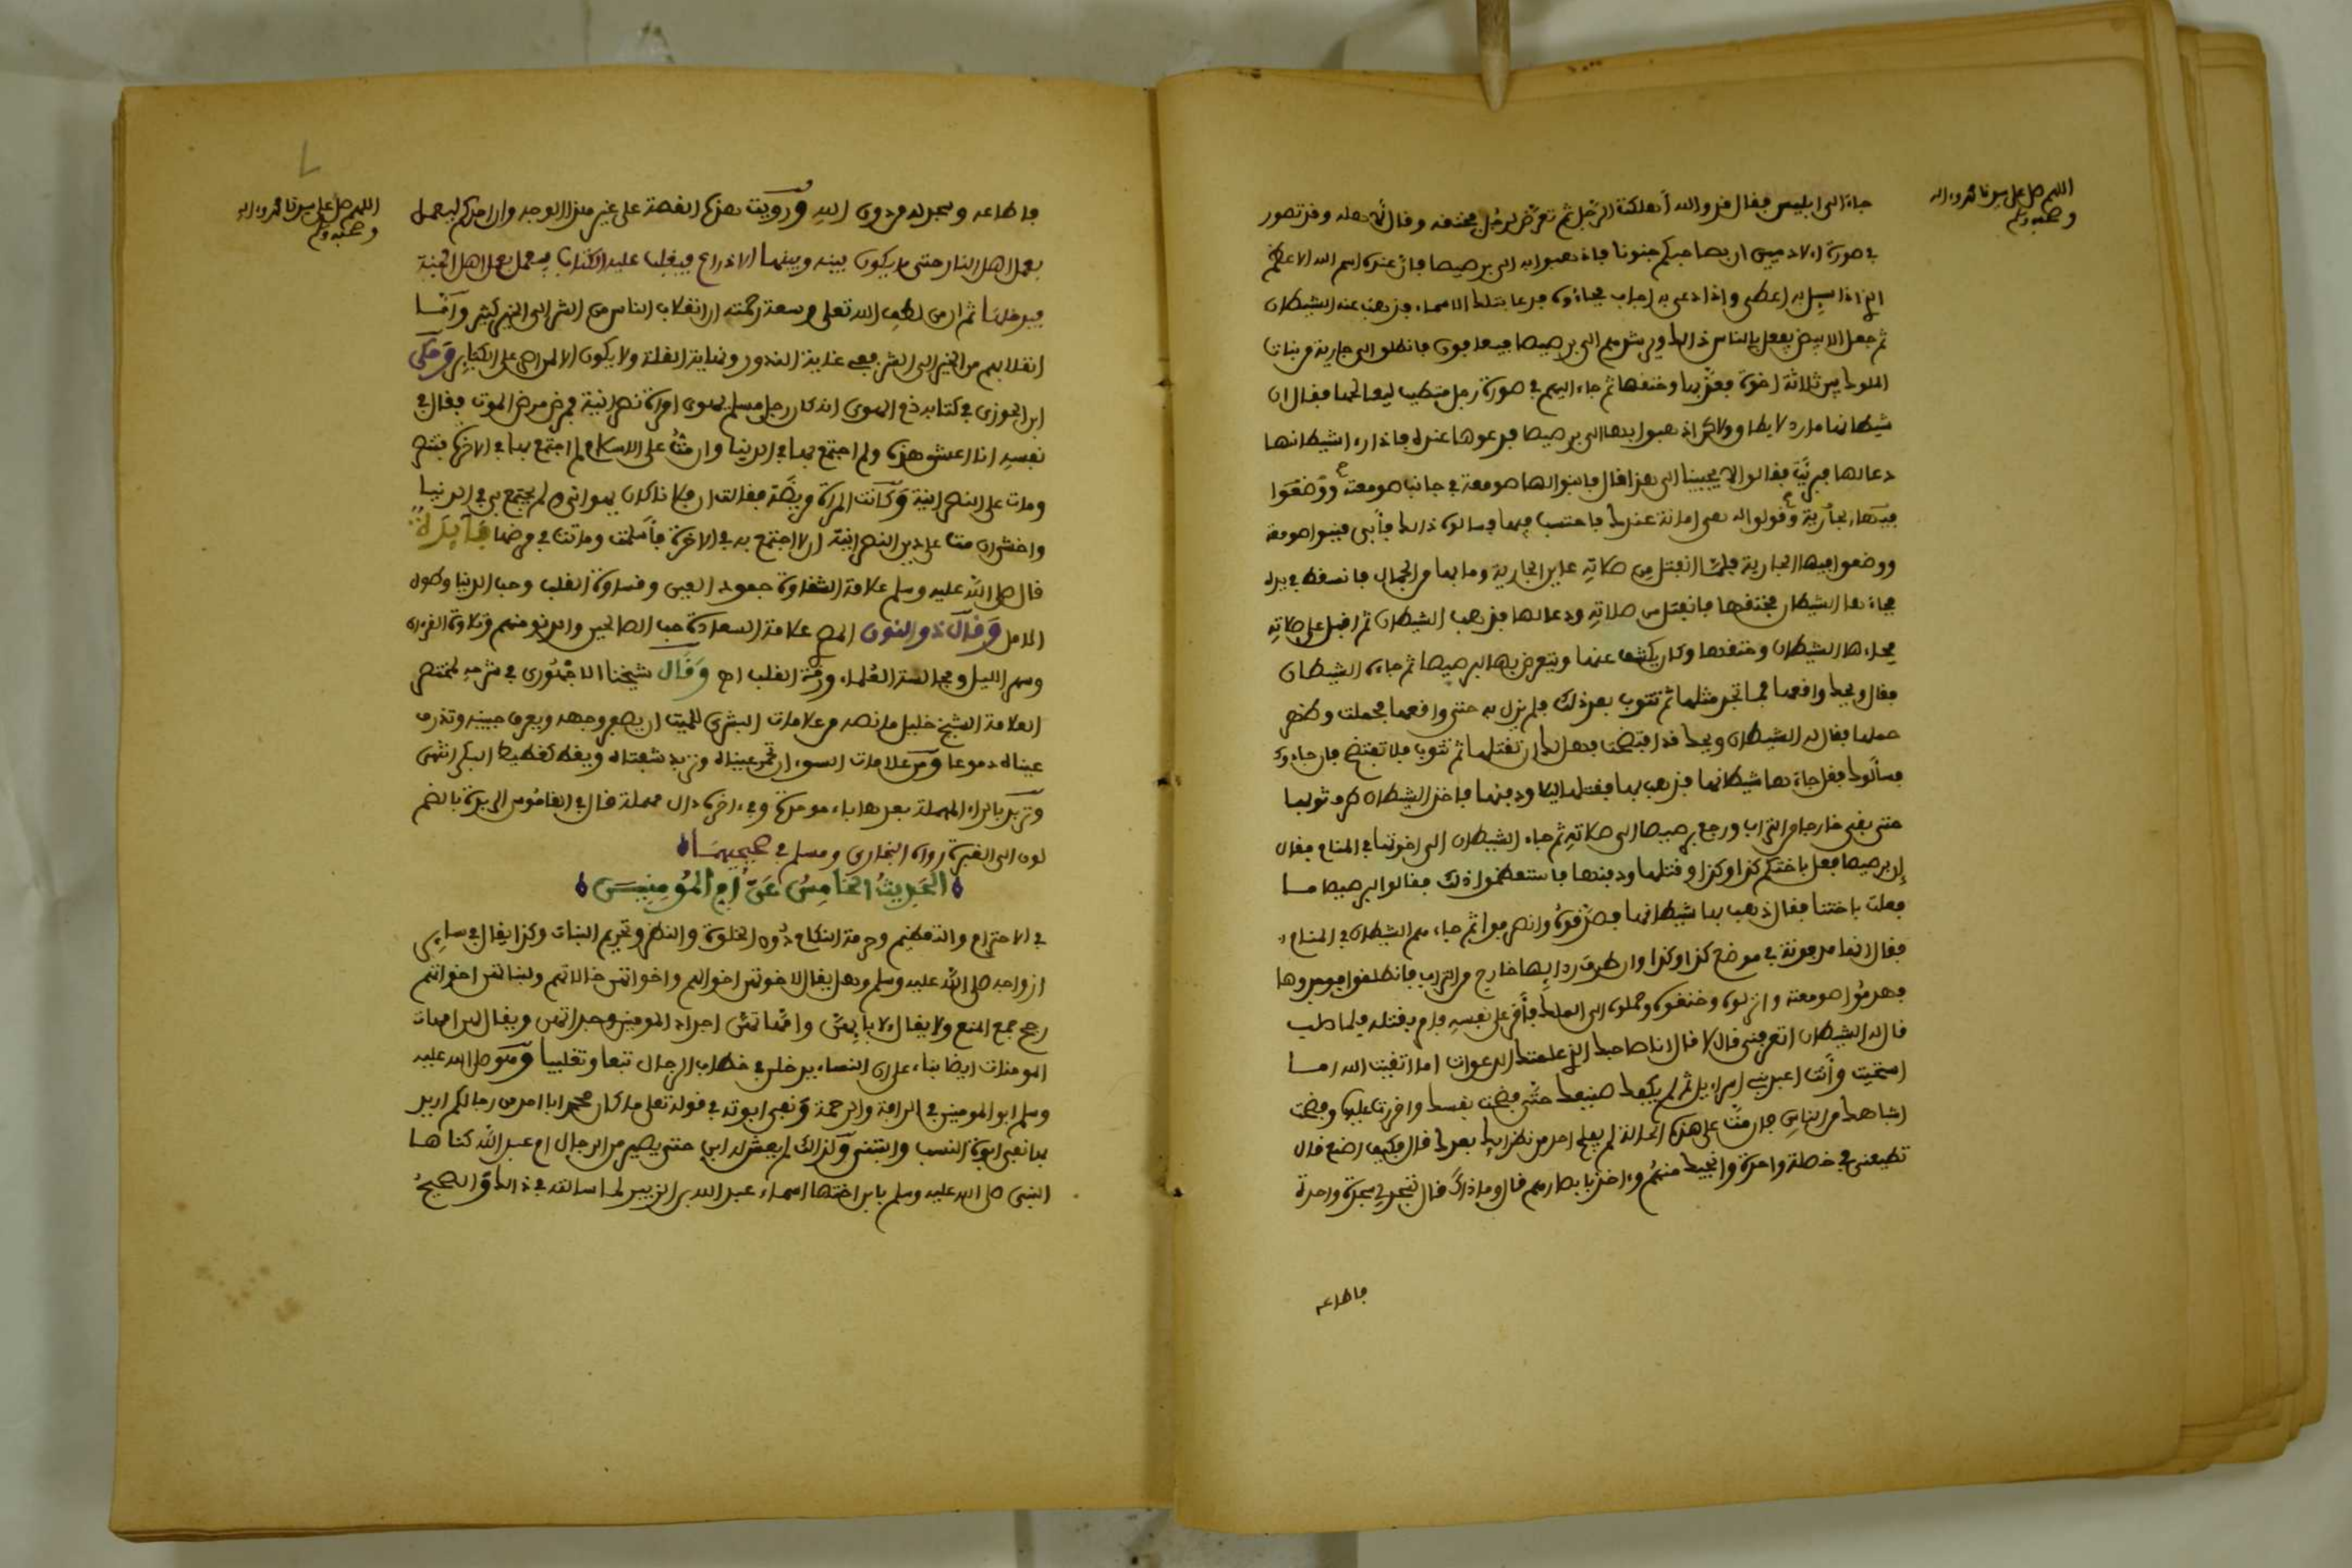 اللهم صل على سيدنا محمد وءاله
وصحبه وسلم
جاء الى ابليس فقال فد والله أهلكت الرجل ثم تعرض لرجل فخنفه وفال لأهله وفد تصور
في صورة الادميين ان بصاحبكم جنونا فاذهبوا به الى برصيصا فان عنده اسم الله الاعظم
الذي اذا سيل به اعطى واذا دعي به اجاب فجاءوه فدعا بتلك الاسماء فذهب عنه الشيطان
ثم جعل الابيض يفعل بالناس ذالك ويرشدهم الى برصيصا فيعافون فانطلق الى جارية من بنات
الملوك بين ثلاثة اخوة فعذبها وخنفها ثم جاء اليهم في صورة رجل متطبب ليعالجها ففال ان
شيطانها مارد لا يطاق ولاكن اذهبوا بها الى برصيصا فدعوها عنده فاذا جاء شيطانها
دعا لها فبرئت ففالوا لا يجيبنا الى هذا فال فابنوا لها صومعة في جانب صومعته وضعوا
فيها الجارية وفولوا له هي امانة عندك فاحتسب فيها فسالوه ذالك فأبى فبنوا صومعة
ووضعوا فيها الجارية فلما انفتل من صلاته عاين الجارية وما بها من الجمال فاسفط في يده
فجاءها الشيطان فخنفها فانفتل من صلاته ودعا لها فذهب الشيطان ثم افبل على صلاته
فجاءها الشيطان وخنفها وكان يكشف عنها ويتعرض بها لبرصيصا ثم جاءه الشيطان
ففال ويحك وافعها فما تجد مثلها ثم تتوب بعد ذلك فلم يزل به حتى وافعها فحملت وظهر
حملها ففال له الشيطان ويحك فد افتضحت فهل لك ان تفتلها ثم تتوب فلا تفتضح فان جاءوك
فسألوك ففل جاءها شيطانها فذهب بها ففتلها ليلا ودفنها فاخذ الشيطان طرف ثوبها
حتى بفي خارجا من التراب ورجع برصيصا الى صلاته ثم جاء الشيطان الى اخوتها في المنام ففال
إن برصيصا فعل باختكم كذا وكذا وفتلها ودفنها فاستعظموا ذلك ففالوا لبرصيصا ما
فعلت باختنا ففال ذهب بها شيطانها فصدفوه وانصرفوا ثم جاءهم الشيطان في المنام
ففال انها مدفونة في موضع كذا وكذا وان طرف ردايها خارج من التراب فانطلفوا فوجدوها
فهدموا صومعته وانزلوه وخنفوه وحملوه الى الملك فأفر على نفسه فامر بفتله فلما صلب
فال له الشيطان اتعرفني فال لا فال انا صاحبك الذي علمتك الدعوات اما اتفيت الله اما
استحيت وأنت اعبد بني اسراءيل ثم لم يكفك صنيعك حتى فضحت نفسك وافررت عليها وفضحت
اشباهك من الناس فان مت على هذه الحالة لم يفلح احد من نظرايك بعدك فال فكيف اصنع فال
تطيعني في خصلة واحدة وانجيك منهم واخذ بابصارهم فال وما ذاك فال تسجد لي سجدة واحدة
فاطاعه
اللهم صل على سيدنا محمد وءاله
وصحبه وسلم
فاطاعه وسجد له من دون الله ورويت هذه الفصة على غير هذا الوجه وان احدكم ليعمل
بعمل اهل النار حتى ما يكون بينه وبينها الا ذراع فيغلب عليه الكتاب فيعمل بعمل اهل الجنة
فيدخلها ثم ان من لطف الله تعلى وسعة رحمته ان انفلاب الناس من الشر الى الخير كثير وأما
انفلابهم من الخير الى الشر ففي غاية الندور ونهاية الفلة ولا يكون الا لمن اصر على الكبائر وحكى
ابن الجوزي في كتابه ذم الهوى انه كان رجل مسلم يهوى امراة نصرانية فمرض مرض الموت ففال في
نفسه انا اعشق هذه ولم اجتمع بها في الدنيا وان مت على الاسلام لم اجتمع بها في الاخرة فتنصر
ومات على النصرانية وكانت المراة مريضة ففالت ان فلانا كان يهواني ولم يجتمع بي في الدنيا
واخشى ان مت على دين النصرانية ان لا اجتمع به في الاخرة فأسلمت وماتت في مرضها فايدة
فال صلى الله عليه وسلم علامة الشفاوة جمود العين وفساوة الفلب وحب الدنيا وطول
الامل وفال ذو النون المصري علامة السعادة حب الصالحين والدنو منهم وتلاوة الفرءان
وسهر الليل ومجالسة العلماء ورفة الفلب اه وفال شيخنا الاجهوري في شرحه لمختصر
العلامة الشيخ خليل ما نصه من علامات البشرى للميت ان يصفر وجهه ويعرف جبينه وتذرف
عيناه دموعا ومن علامات السوء ان تحمر عيناه وتربد شفتاه ويغط كغطيط البكر انتهى
وتربد بالراء المهملة بعدها باء موحدة وفي ءاخره دال مهملة فال في الفاموس الربدة بالضم
لون الى الغبرة رواه البخاري ومسلم في صحيحيهما
الحديث الخامس عن أم المومنين
في الاحترام والتعظيم وحرمة النكاح دون الخلوة والنظر وتحريم البنات وكذا يفال في ساير
ازواجه صلى الله عليه وسلم وهل يفال لاخوتهن اخوالهم واخواتهن خالاتهم ولبناتهن اخواتهم
رجح جمع المنع ولا يفال لابايهن وامهاتهن اجداد المومنين وجداتهن ويفال لهن امهات
المومنات ايضا بناء على ان النساء يدخلن في خطاب الرجال تبعا وتغليبا وهو صلى الله عليه
وسلم ابو المومنين في الرافة والرحمة ونفي ابوته في فوله تعلى ما كان محمد ابا احد من رجالكم اريد
بها نفي ابوة النسب والتبني وكذالك لم يعش له ابن حتى يصير من الرجال ام عبد الله كناها
النبي صلى الله عليه وسلم بابن اختها اسماء عبد الله بن الزبير لما سالته في ذالك والصحيح